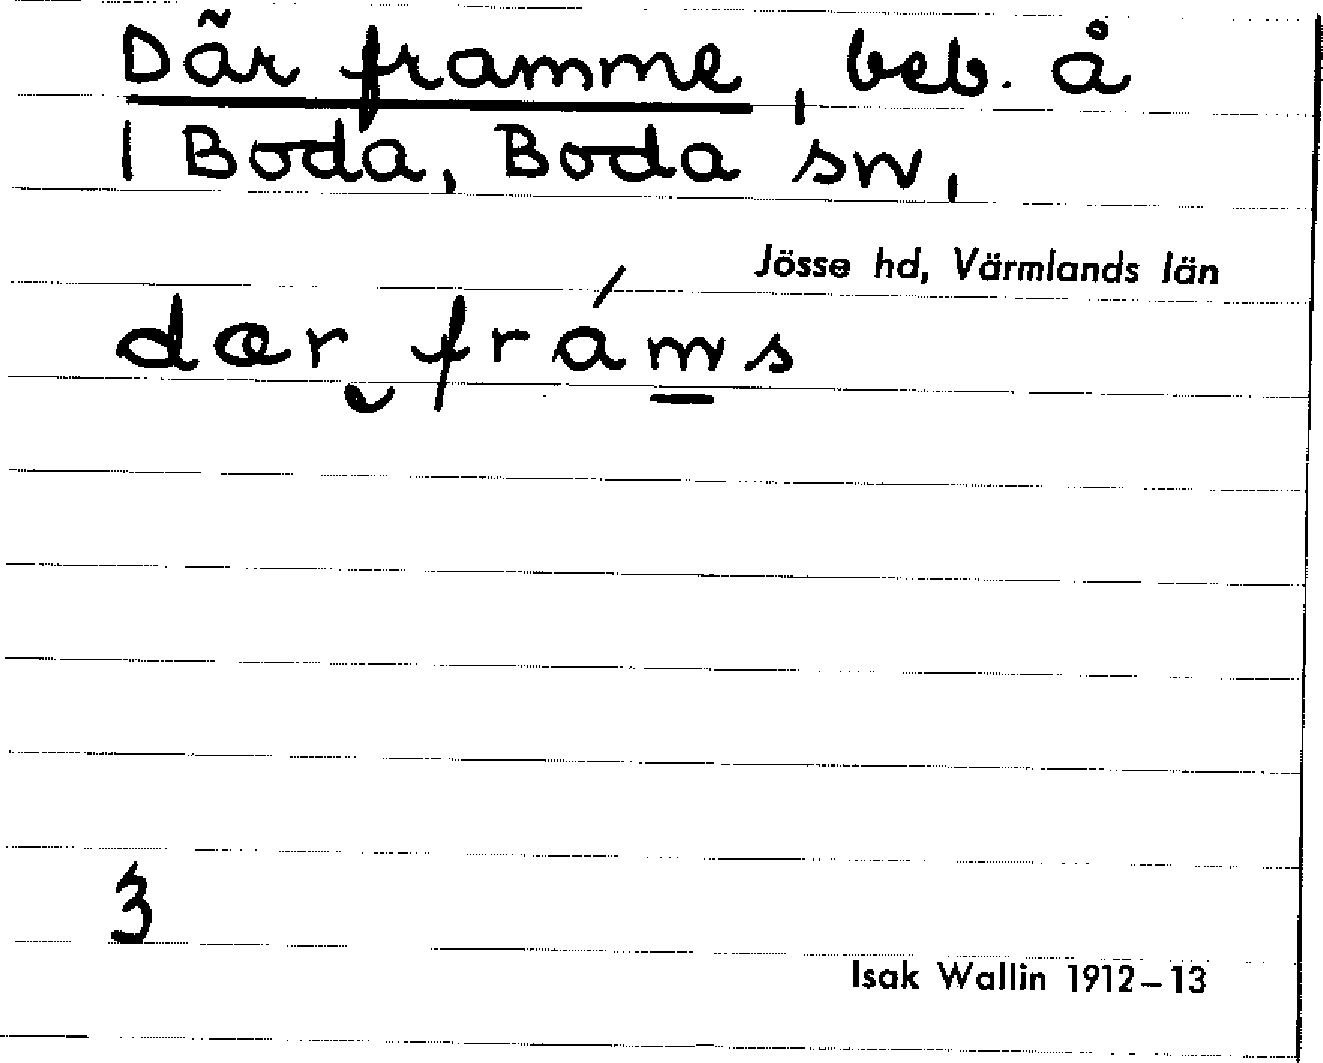 Där framme, beb. å
1 Boda, Boda sn,
Jösse hd, Värmlands län
dær fráms
3
Isak Wallin 1912–13